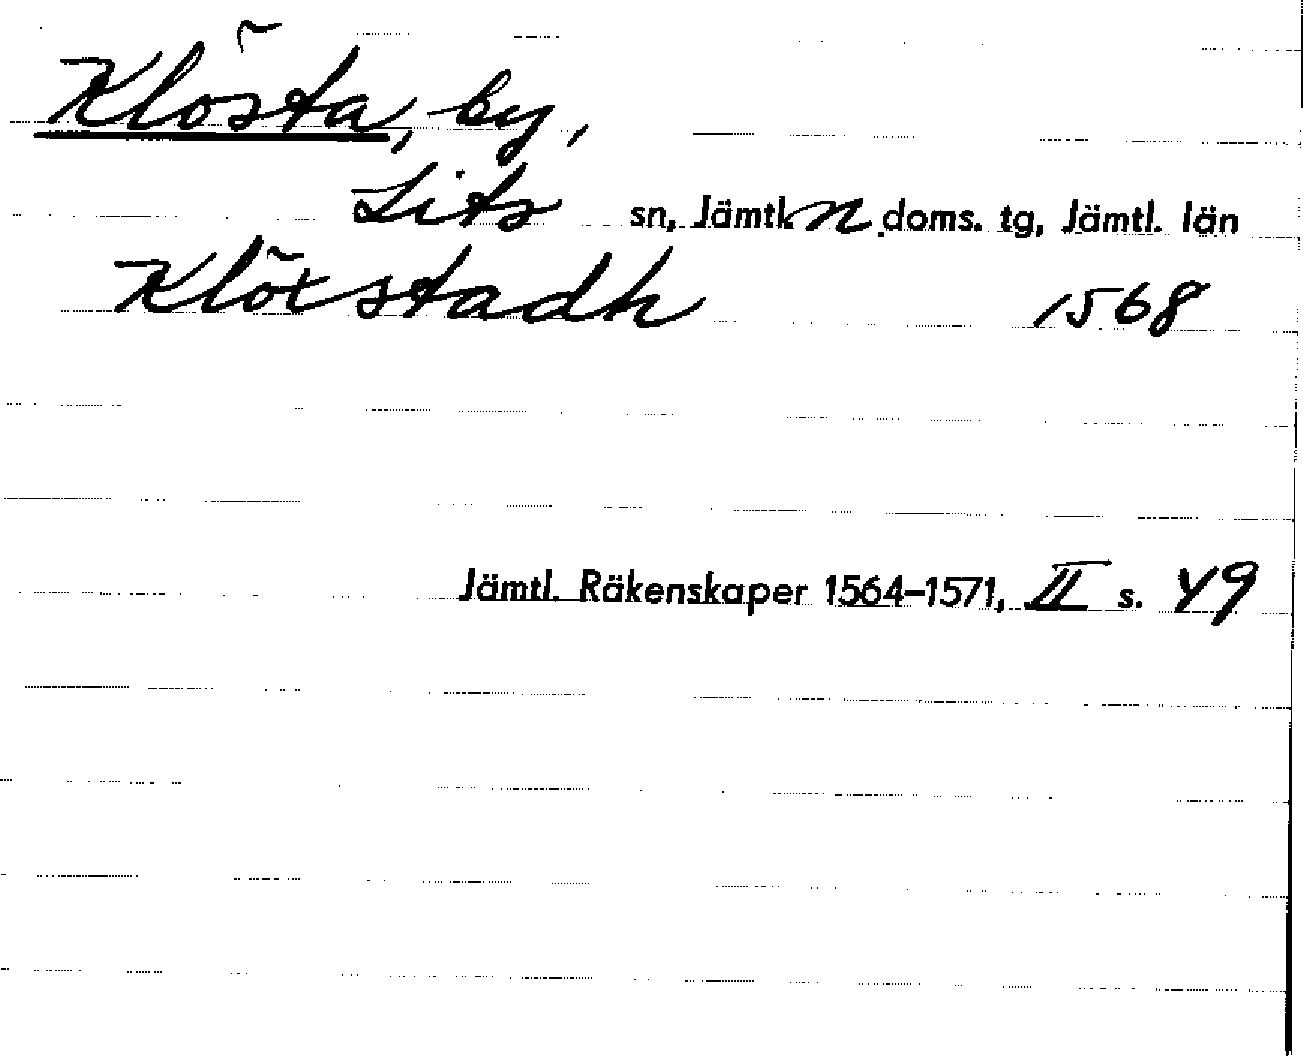 Klösta, by,
Lits sn, Jämtl. n doms. tg, Jämtl. län
Klöxstadh 1568
Jämtl. Räkenskaper 1564–1571, II s. 49